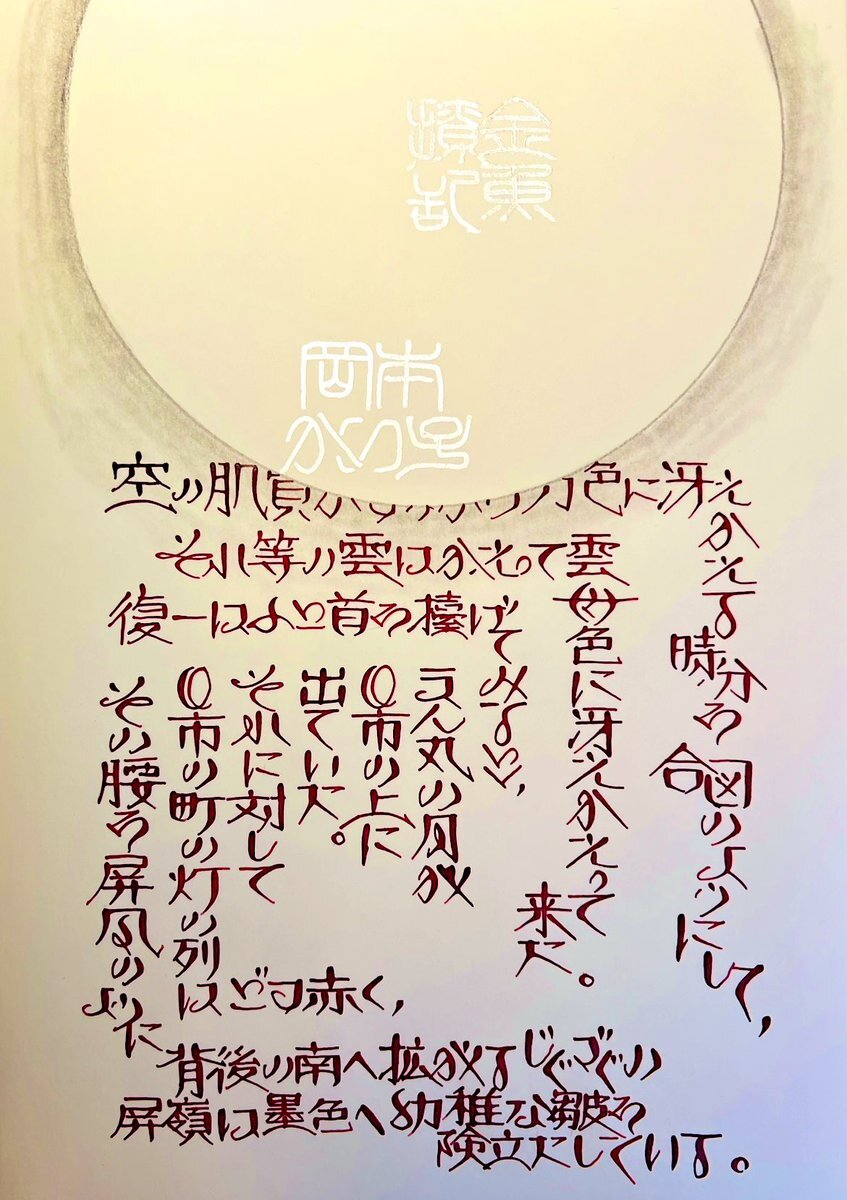 金魚
撩乱
岡本
かの子
空の肌質がすっかり刀色に冴えかえる
時分を
合図のようにして、
それ等の雲はかえって雲母色に冴えかえって
来た。
復一はふと首を擡げてみると、
まん丸の月が
O市の上に
出ていた。
それに対して
O市の町の灯の列はどす赤く、
その腰を屏風のように
背後の南へ拡がるじぐざぐの
屏嶺は墨色へ幼稚な皺を
険立たしている。